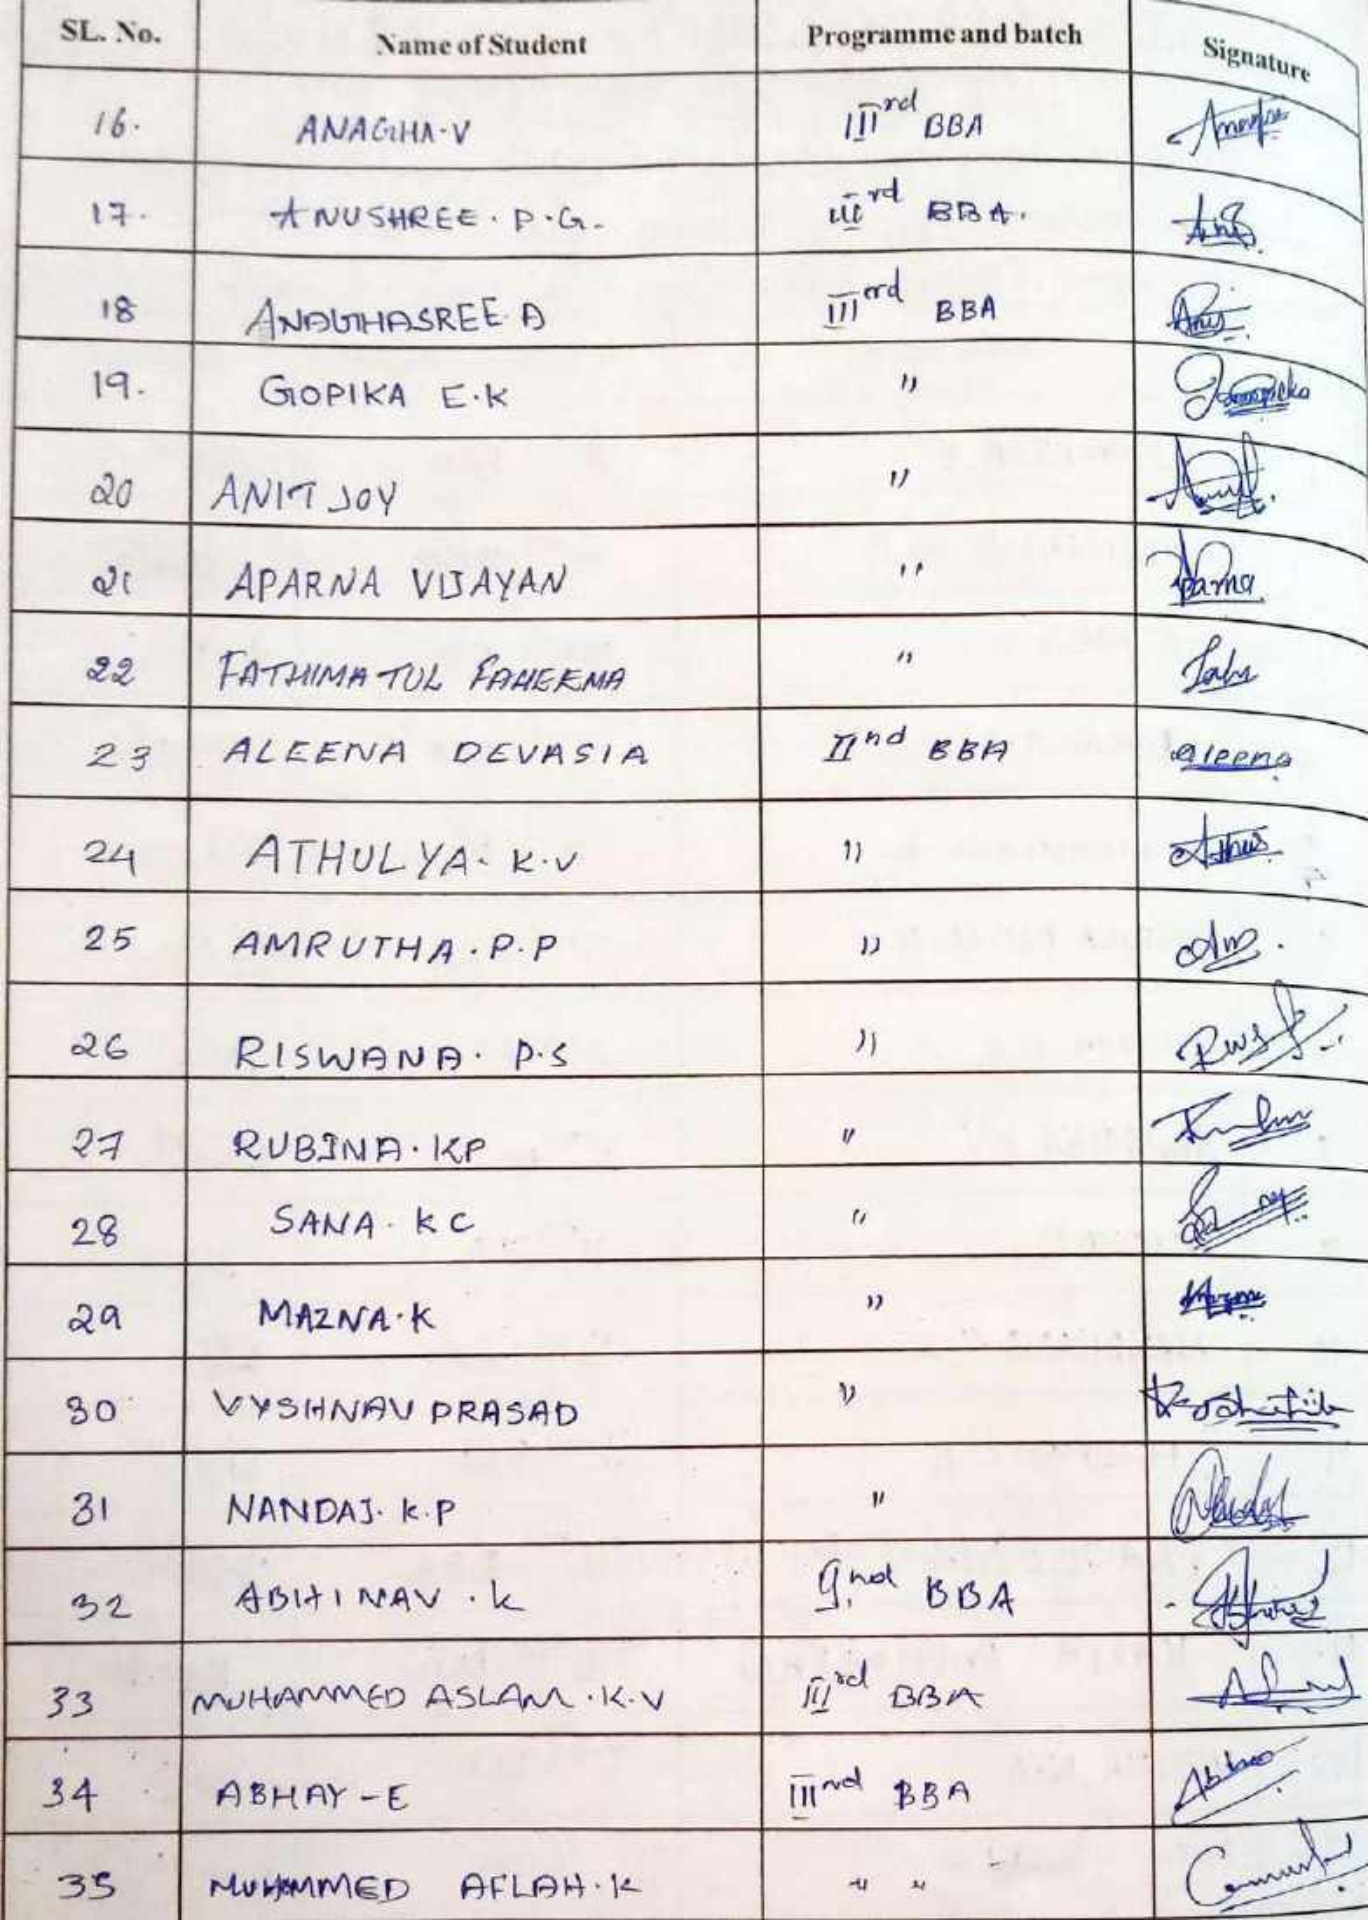 SL. No. Name of Student Programme and batch Signature
16. ANAGHA.V IIIrd BBA
17. ANUSHREE. P.G. IIIrd BBA.
18 ANAGHASREE A IIIrd BBA
19. GOPIKA E.K "
20 ANIT JOY "
21 APARNA VIJAYAN "
22 FATHIMATUL FAHEEMA "
23 ALEENA DEVASIA IInd BBA aleena
24 ATHULYA. K.V "
25 AMRUTHA. P.P "
26 RISWANA. P.S "
27 RUBINA. KP "
28 SANA. KC "
29 MAZNA.K "
30 VYSHNAV PRASAD "
31 NANDAJ. K.P "
32 ABHINAV .K BBA
33 MUHAMMED ASLAM .K.V IIIrd BBA
34 ABHAY-E BBA
35 MUHAMMED AFLAH.K " "